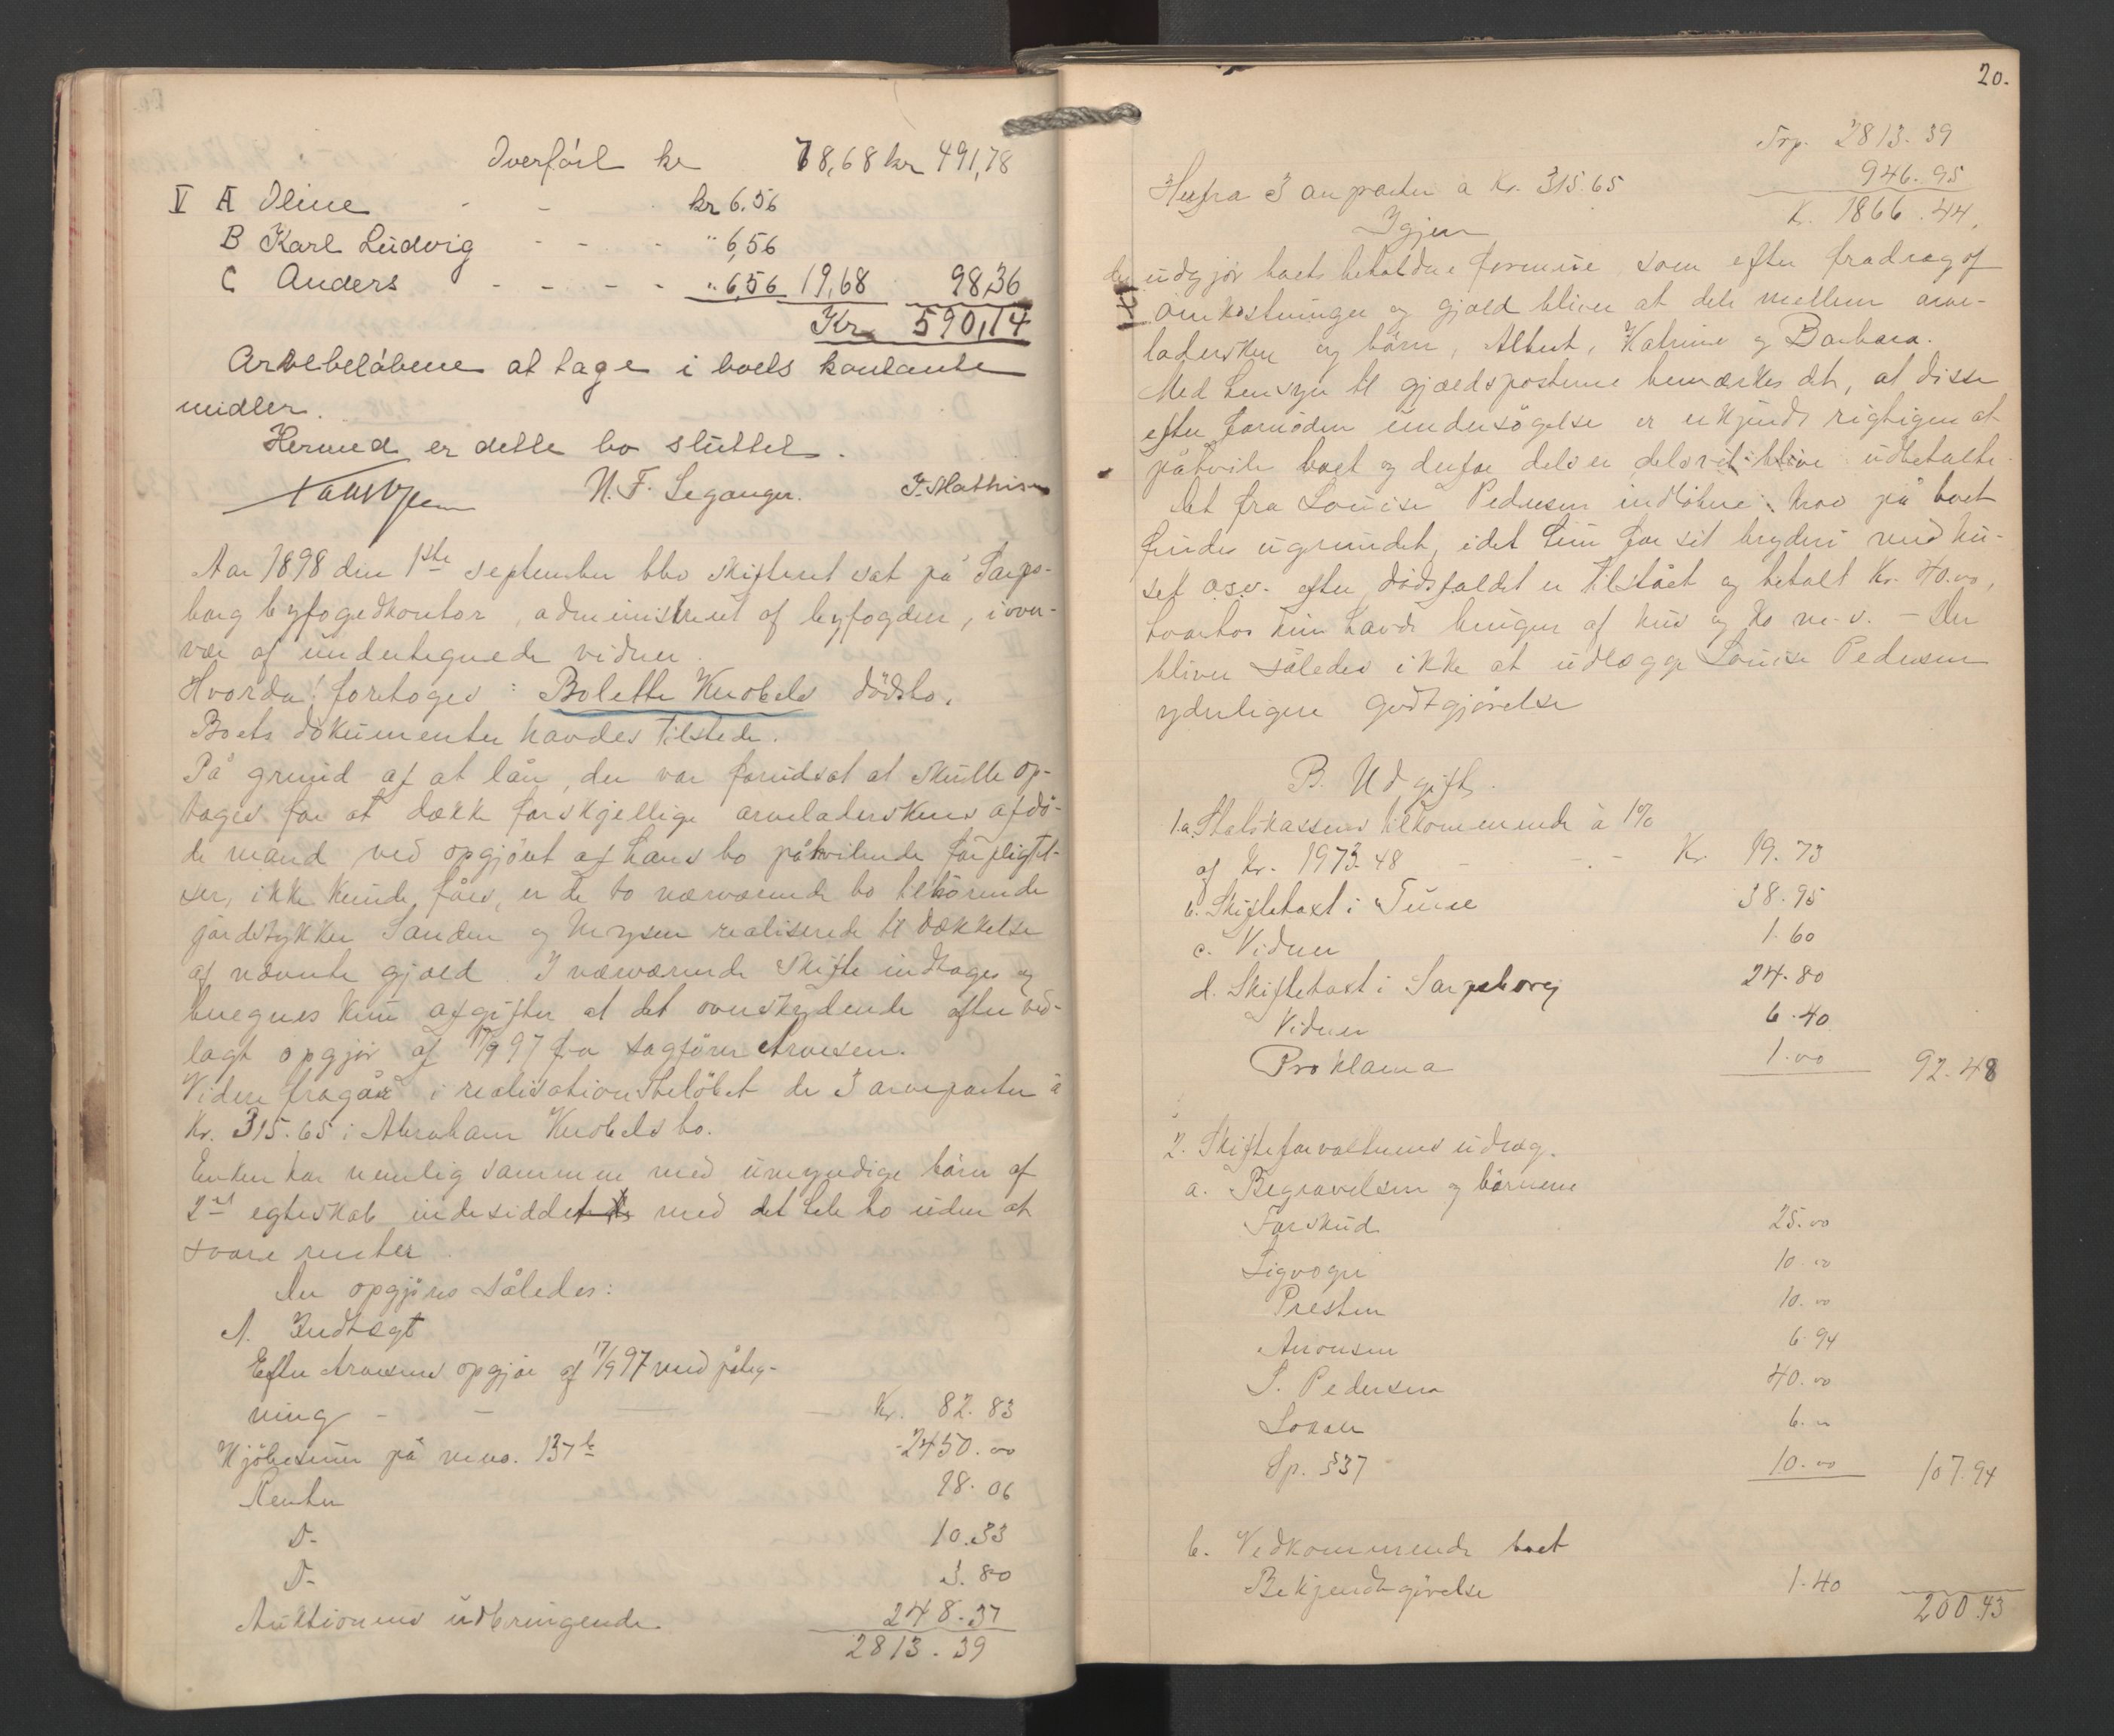 Overfört kr 78,68 kr 491,78
V A Oline - - kr 6,56
B Karl Ludvig - - - " 6,56
C Anders - - - - " 6,56 19,68 98,36
Kr 590,14
Arvebelöbene at tage i boets kontante
midler.
Hermed er dette bo sluttet.
N. F. Leganger. F. Mathisen
Aar 1898 den 1ste september blev skifteret sat på Sarps-
borg byfogedkontor, administreret af byfogden, i over-
vær af undertegnede vidner.
Hvorda! foretoges: Bolette Knobels dödsbo.
Boets dokumenter havdes tilstede.
På grund af at lån, der var forudsat at skulle op-
tages for at dække forskjellige arveladerskens afdö-
de mand ved opgjöret af hans bo påhvilende forpligtel-
ser, ikke kunde fåes, er de to nærværende bo tilhörende
jordstykker Sanden og Mysen realiserede til dækkelse
af nævnte gjæld. I nærværende skifte indtages og
beregnes kun afgifter at det overskydende efter ved-
lagt opgjör af 17/9 97 fra sagförer Arnesen.
Videre fragår i realisationsbelöbet de 3 arveparter à
Kr. 315.65 i Abraham Knobels bo.
Enken har nemlig sammen med umyndige börn af
2det egteskab indesiddet med det hele bo uden at
svare renter.
Der opgjöres således:
A. Indtægt
Efter Arnesens opgjör af 17/9 97 med påteg-
ning - - - Kr. 82.83
Kjöbesum på mno. 137b - 2450.00
Renter 18.06
D- 10.33
D- 3.80
Auktionens udbringende 248.37
2813.39
20.
Trp. 2813.39
Herfra 3 arveparter a Kr. 315.65 946.95
Igjen K. 1866.44.
der udgjör boets beholdne formue, som efter fradrag af
omkostninger og gjæld bliver at dele mellem arve-
ladersken og börn, Albert, Katrine og Barbara.
Med hensyn til gjældsposterne bemærkes det, at disse
efter fornöden undersögelse er erkjendt rigtigen at
påhvile boet og derfor dels er dels vil blive udbetalte.
Det fra Louise Pedersen indlöbne krav på boet
findes ugrundet, idet hun for sit bryderi med hu-
set o.s.v. efter dödsfaldet er tilstået og betalt Kr. 40.00,
hvorhos hun havde brugen af hus og ko m.v. - Der
bliver således ikke at udlægge Louise Pedersen
yderligere godtgjörelse
B. Udgift.
1.a. Statskassens tilkommende à 1%
af Kr. 1973.48 - - - Kr. 19.73
b. Skiftetaxt i Tune 38.95
c. Vidner 1.60
d. Skiftetaxt i Sarpsborg 24.80
Vidner 6.40
Proklama 1.00 92.48
2. Skifteforvaltnens udlæg.
a. Begravelsen og börnene
Forskud 25.00
Ligvogn 10.00
Presten 10.00
Aronsen 6.94
L. Pedersen 40.00
6.00
Sp. §37 10.00 107.94
b. Vedkommende boet
Bekjendtgjörelse 1.40
200.43